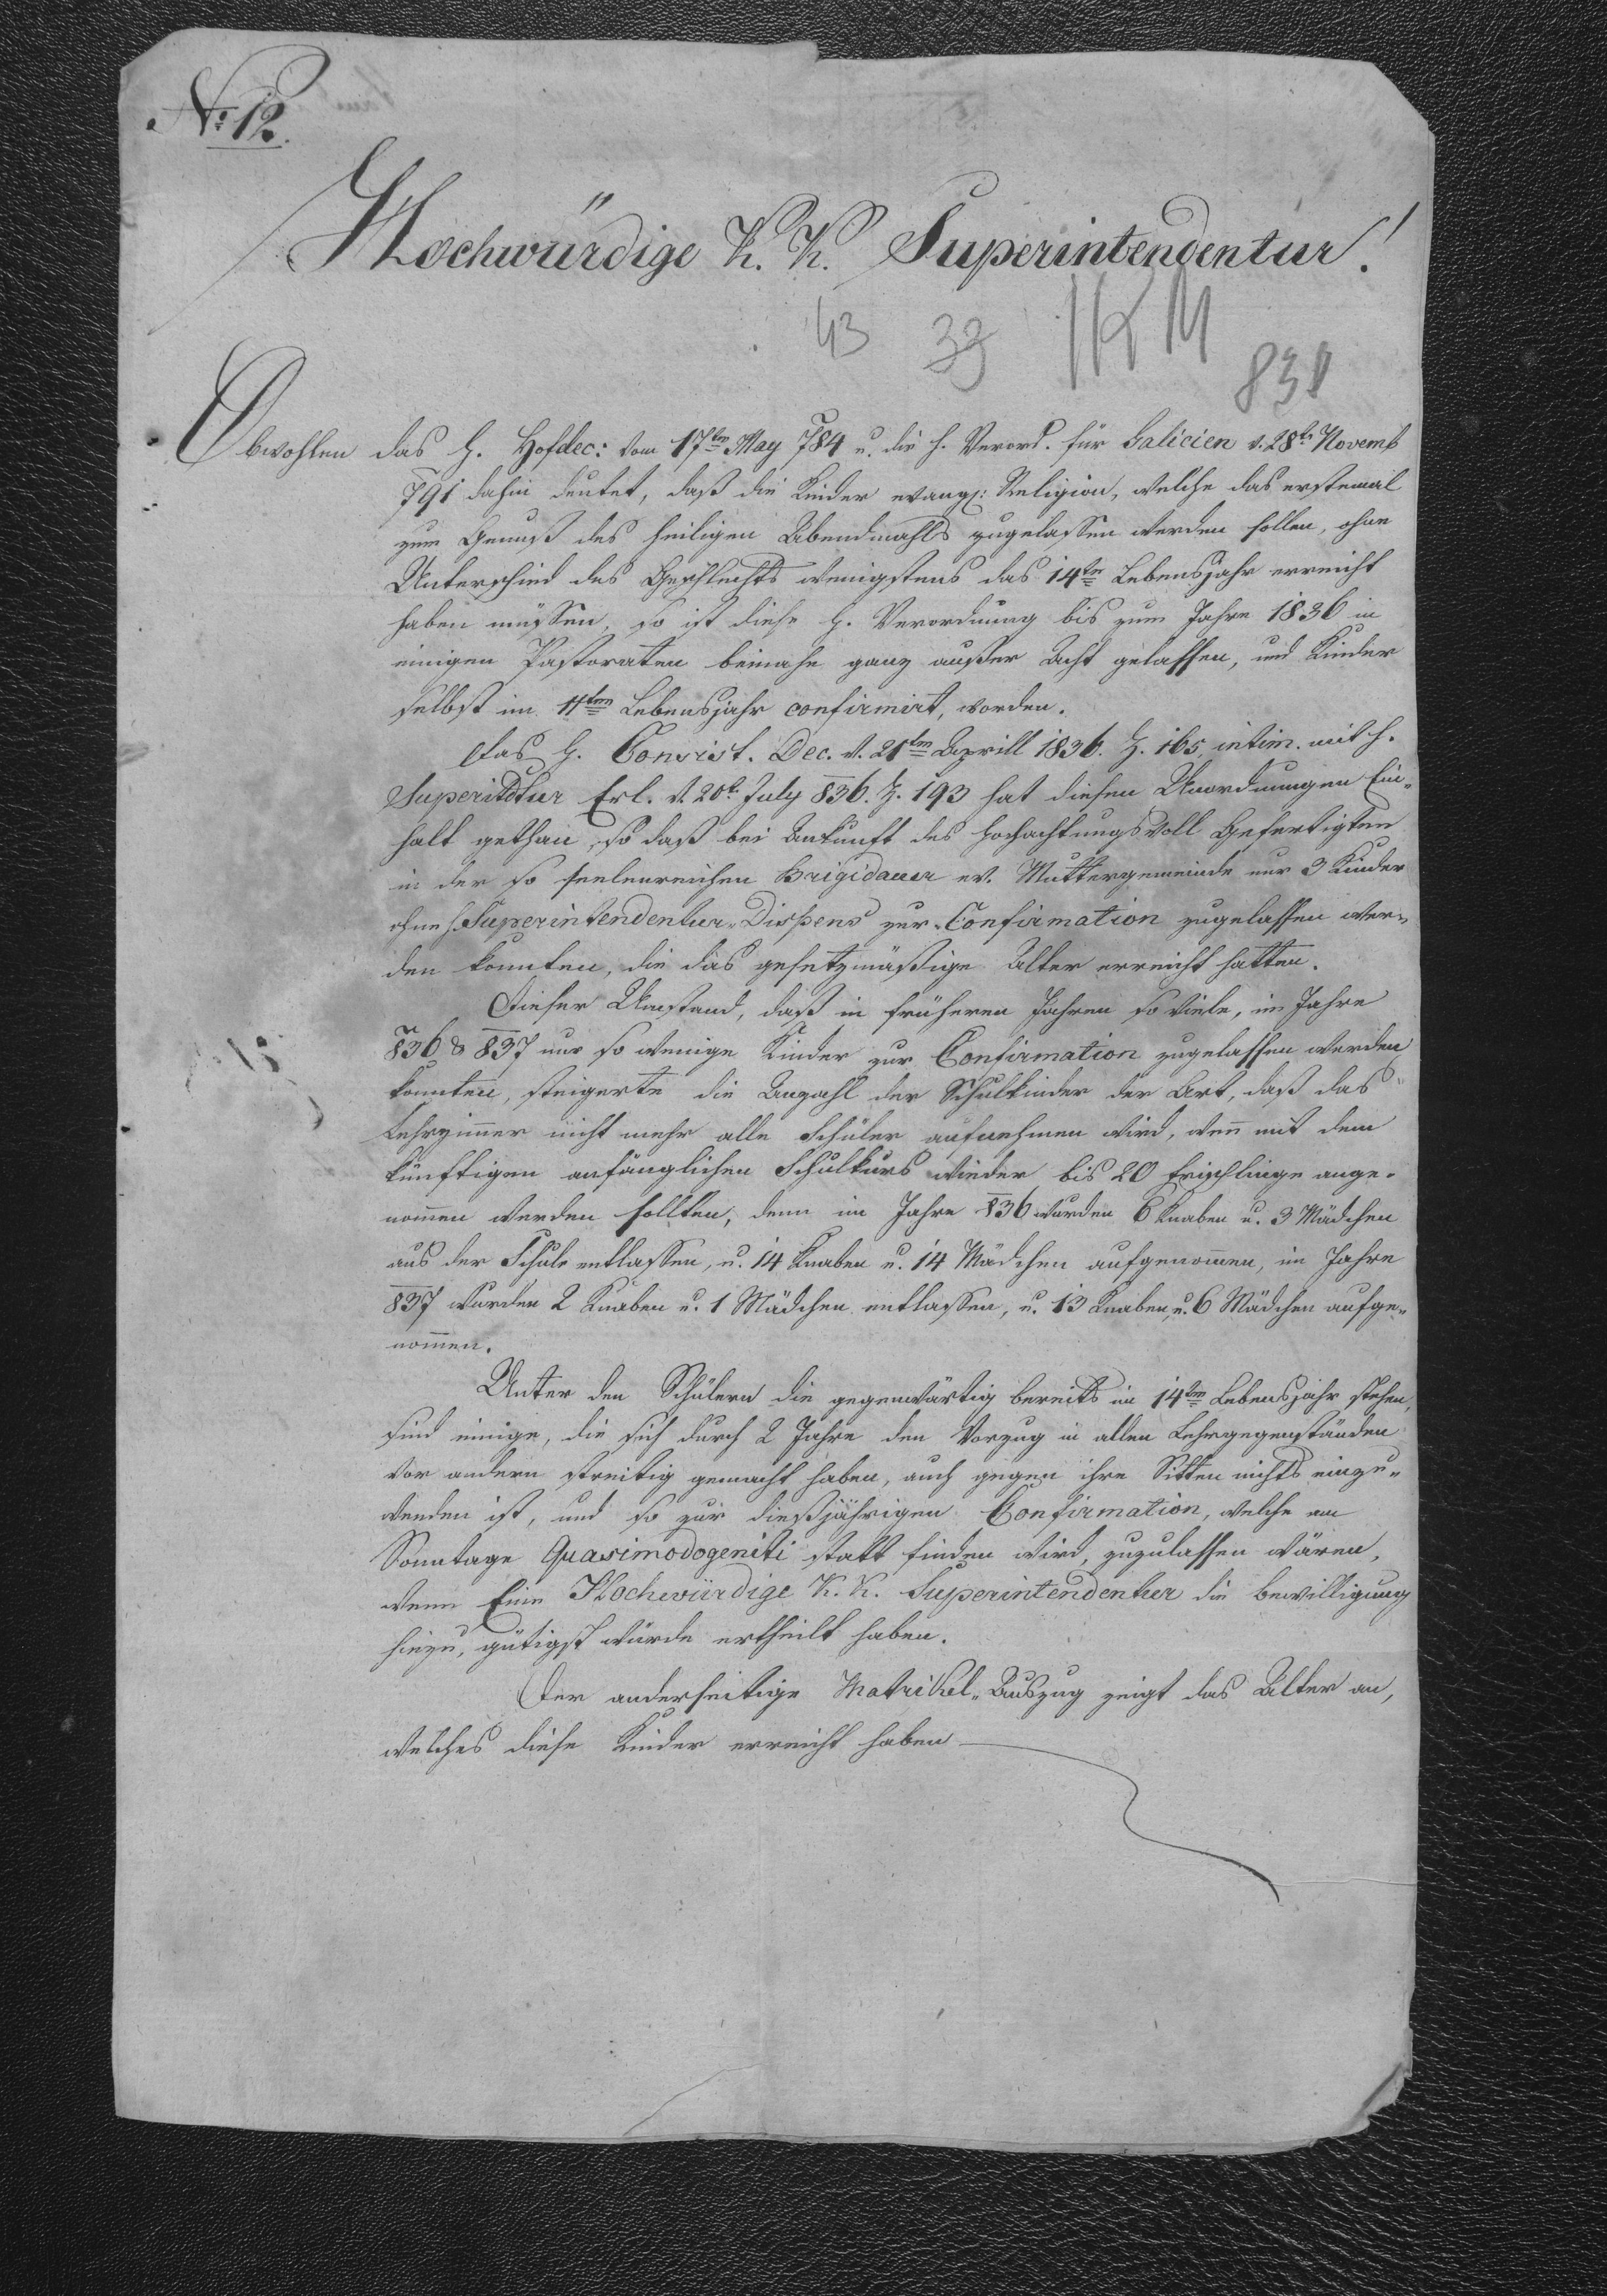 No: 12.
Hochwürdige K. K. Superintendentur!
43 39
838
Obwohlen das h. Hofdec: vom 17ten May 784 u. die h. Verord. für Galicien v. 28t. Novemb
791 dahin deutet, daß die Kinder evangl: Religion, welche das erstemal
zum Genuß des heiligen Abendmahls zugelassen werden sollen, ohne
Unterschied des Geschlechts wenigstens das 14te Lebensjahr erreicht
haben müssen, so ist diese h. Verordnung bis zum Jahre 1836 in
einigen Pastoraten beinahe ganz außer Acht gelassen, und Kinder
selbst im 11ten Lebensjahr confirmirt, worden.
Das h. Consist. Dec. v. 21ten Aprill 1836. Z. 165 intim. mit h.
Superitdtur Erl. v. 20t. July 836. Z. 193 hat diesen Unordnungen Ein-
halt gethan, so daß bei Ankunft des hochachtungsvoll Gefertigten
in der so seelenreichen Brigidauer ev. Muttergemeinde nur 3 Kinder
ohne h. Superintendentur-Dispens zur Confirmation zugelassen wer-
den konnten, die das gesetzmäßige Alter erreicht hatten.
Dieser Umstand, daß in früheren Jahren so viele, im Jahre
836 & 837 nur so wenige Kinder zur Confirmation zugelassen werden
konnten, steigerte die Anzahl der Schulkinder der Art, daß das
Lehrzimmer nicht mehr alle Schüler aufnehmen wird, wen̄ mit dem
künftigen anfänglichen Schulkurs wieder bis 20 Frischlinge ange-
nom̄en werden sollten, denn im Jahre 836 wurden 6 Knaben u. 3 Mädchen
aus der Schule entlassen, u. 14 Knaben u. 14 Mädchen aufgenom̄en, im Jahre
837 wurden 2 Knaben u. 1 Mädchen entlassen, u. 13 Knaben, u. 6 Mädchen aufge-
nom̄en.
Unter den Schülern die gegenwärtig bereits im 14ten Lebensjahr stehen,
sind einige, die sich durch 2 Jahre den Vorzug in allen Lehrgegenständen
vor andern streitig gemacht haben, auch gegen ihre Sitten nichts einzu-
wenden ist, und so zur dießjährigen Confirmation, welche am
Sonntage Quasimodogeniti statt finden wird, zuzulassen wären,
wenn Eine Hochwürdige K. K. Superintendentur die Bewilligung
hiezu, gütigst würde ertheilt haben.
Der anderseitige Matrikel-Auszug zeigt das Alter an,
welches diese Kinder erreicht haben